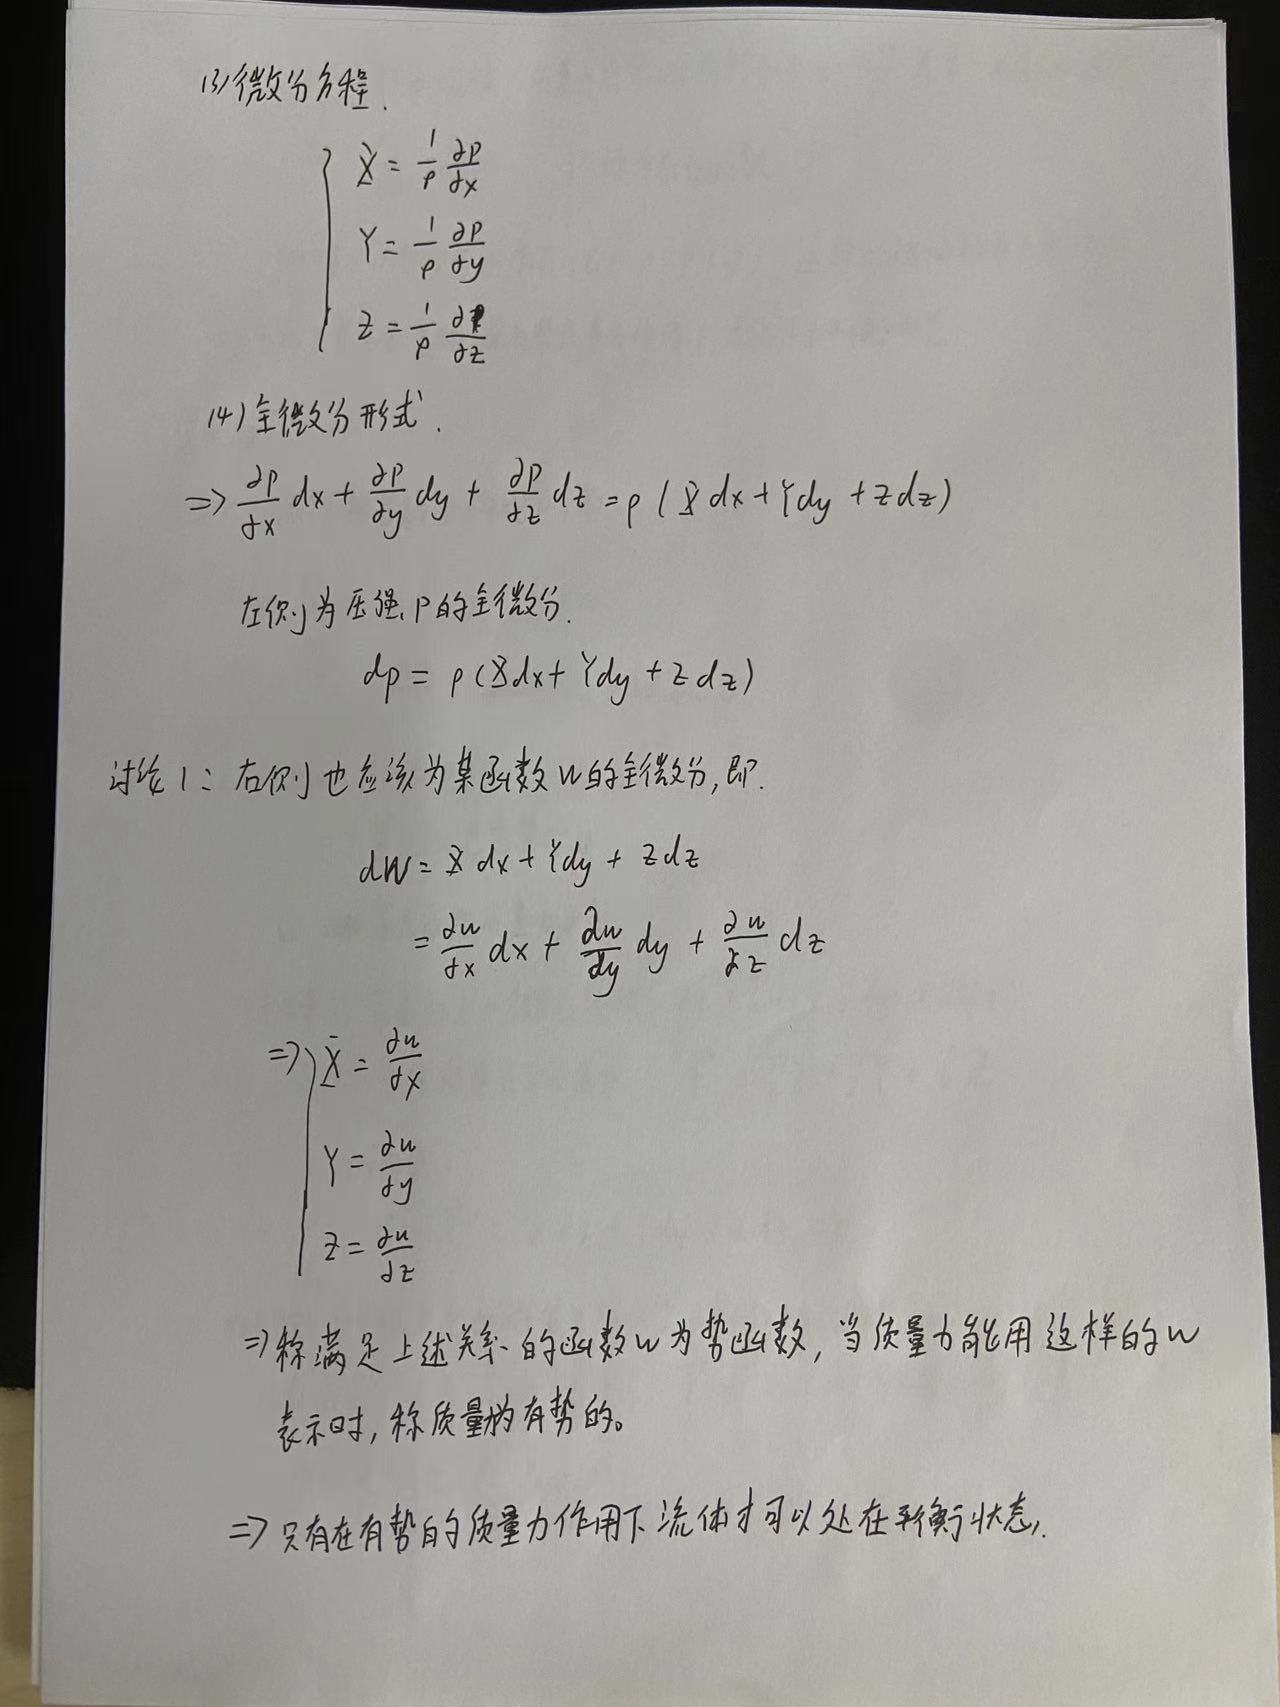 (3)微分方程.
X = 1/ρ ∂p/∂x
Y = 1/ρ ∂p/∂y
Z = 1/ρ ∂p/∂z
(4)全微分形式.
⇒ ∂p/∂x dx + ∂p/∂y dy + ∂p/∂z dz = ρ(Xdx + Ydy + Zdz)
左侧为压强p的全微分.
dp = ρ(Xdx + Ydy + Zdz)
讨论1: 右侧也应该为某函数W的全微分,即.
dW = Xdx + Ydy + Zdz
= ∂u/∂x dx + ∂u/∂y dy + ∂u/∂z dz
⇒ X = ∂u/∂x
Y = ∂u/∂y
Z = ∂u/∂z
⇒称满足上述关系的函数W为势函数,当质量力能用这样的W
表示时,称质量力为有势的。
⇒只有在有势的质量力作用下流体才可以处在平衡状态.